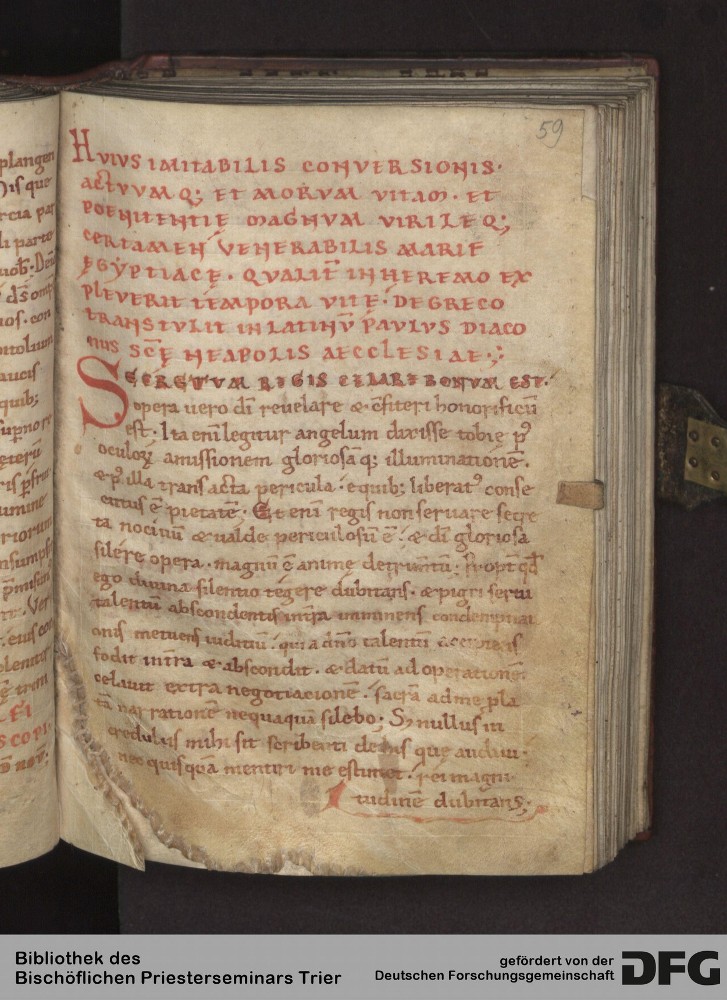 plangen
isque
rcia par
li parte
uob; Deū
ds̄ omp
ios. con
itolium
aucis
quib;
supno re
eterū
ris p̄fru
umine
riorum
nsumps
p̄missu
te. Ver
. eius con
olentis
ē trem
LEI
SCOPI.
59
HVIVS IMITABILIS CONVERSIONIS.
ACTVVMQ; ET MORVM VITAM. ET
POENITENTIE MAGNVM VIRILEQ;
CERTAMEN VENERABILIS MARIE
ĘGYPTIACĘ. QVALIT̄ IN HEREMO EX
PLEVERIT TEMPORA VITE. DE GRECO
TRANSTVLIT IN LATINV̄ PAVLVS DIACO
NVS SC̄Ę NEAPOLIS AECCLESIAE;
SECRETVM REGIS CELARE BONVM EST.
opera uero dī reuelare & c̄fiteri honorificū
est. Ita eni legitur angelum dixisse tobię p᷒
oculoꝝ amissionem gloriosāq; illuminationē.
& p᷒ illa transacta pericula. e quib; liberat᷒ conse
cutus ē pietatē. Et eni regis non seruare secre
ta nociuū & ualde periculosū ē. & dī gloriosa
silere opera. magnū ē anime detrimtū. Propt̄ qd̄
ego diuina silentio tegere dubitans. & pigri serui
talentū abscondentis intra imminens condempnati
onis metuens iuditiū. qui a dn̄o talentū accipiens
fodit intra & abscondit. & datū ad operationē
celauit extra negotiacionē. sacrā ad me pla
tā narrationē nequaquā silebo; S; nullus in
credulus mihi sit scribenti de his que audiui.
nec quisquā mentiri me estimet. rei magni
tudine dubitans;
Bibliothek des
Bischöflichen Priesterseminars Trier
gefördert von der
Deutschen Forschungsgemeinschaft
DFG